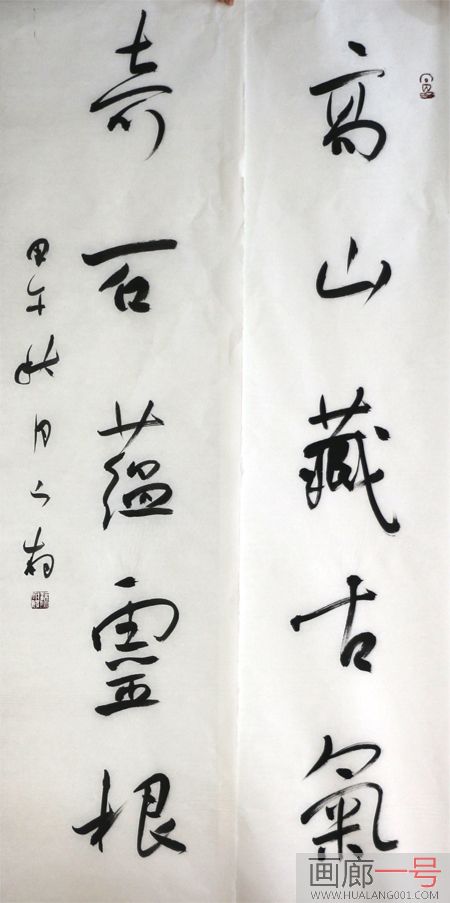 高山藏古氣
奇石蘊靈根
甲午秋月
画廊一号
WWW.HUALANG001.COM